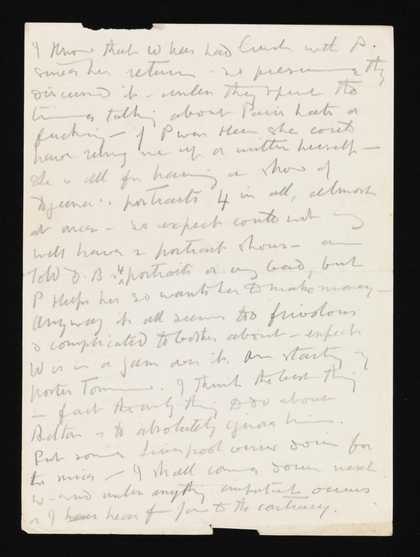 I know that W has had lunch with P.
since her return - so presumably they
discussed it - unless they spent the
time talking about Paris hats or
- if P was keen she could
have rung me up or written herself -
she is all for having a show of
portraits 4 in all, almost
at once - so expect could not very
well have 2 portrait shows - am
told D.B's 4 portraits are very bad, but
P helps her so wants her to make money -
Anyway it all seems too frivolous
& complicated to bother about - expect
W is in a jam over it. Am starting my
poster Tomorrow. I think the best thing
- in fact the only thing to do about
is to absolutely ignore him.
Put some Liverpool down for
the - I shall come down next
w-end unless anything important occurs
or I hear from you to the contrary.